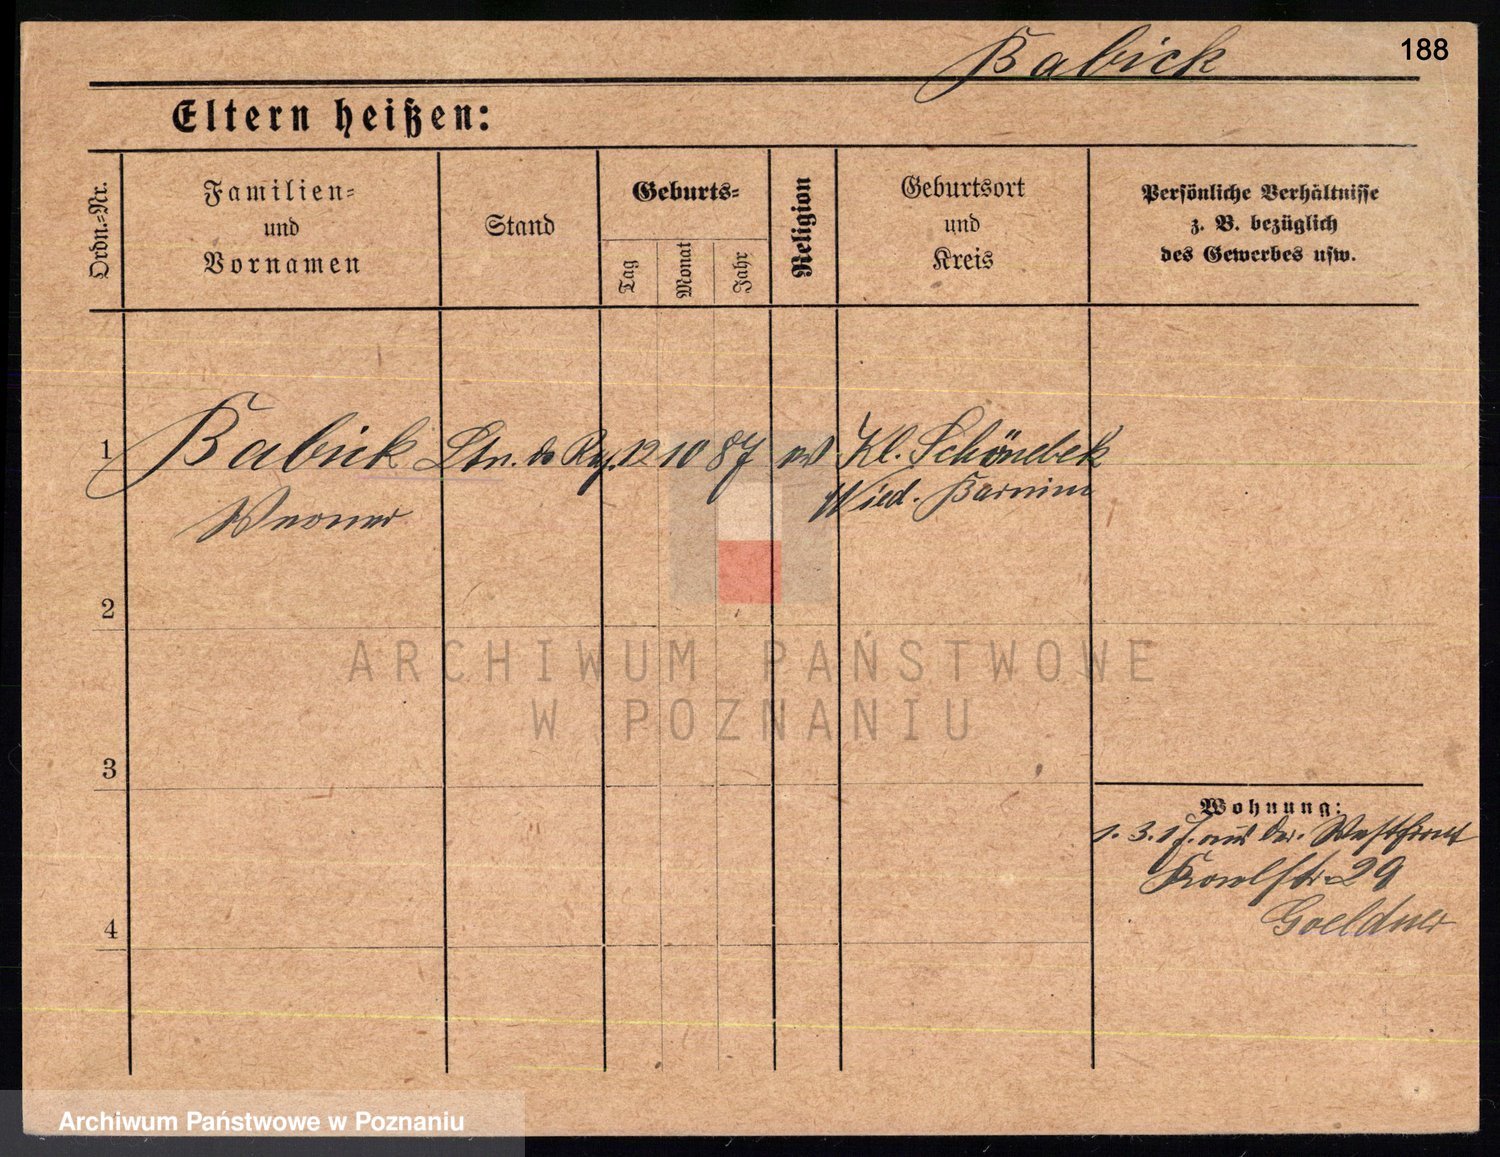 188
Babick
Eltern heißen:
Ordn.=Nr.
Familien=
und
Vornamen
Stand
Geburts=
Tag
Monat
Jahr
Religion
Geburtsort
und
Kreis
Persönliche Verhältnisse
z. B. bezüglich
des Gewerbes usw.
1 Babick Ltn. d. Res. 12 10 87 ev Kl. Schönebek
Werner Nied. Barnim
2
ARCHIWUM PAŃSTWOWE
W POZNANIU
3
Wohnung:
1. 3. 17. aus der Westfront
29
Goeldner
4
Archiwum Państwowe w Poznaniu